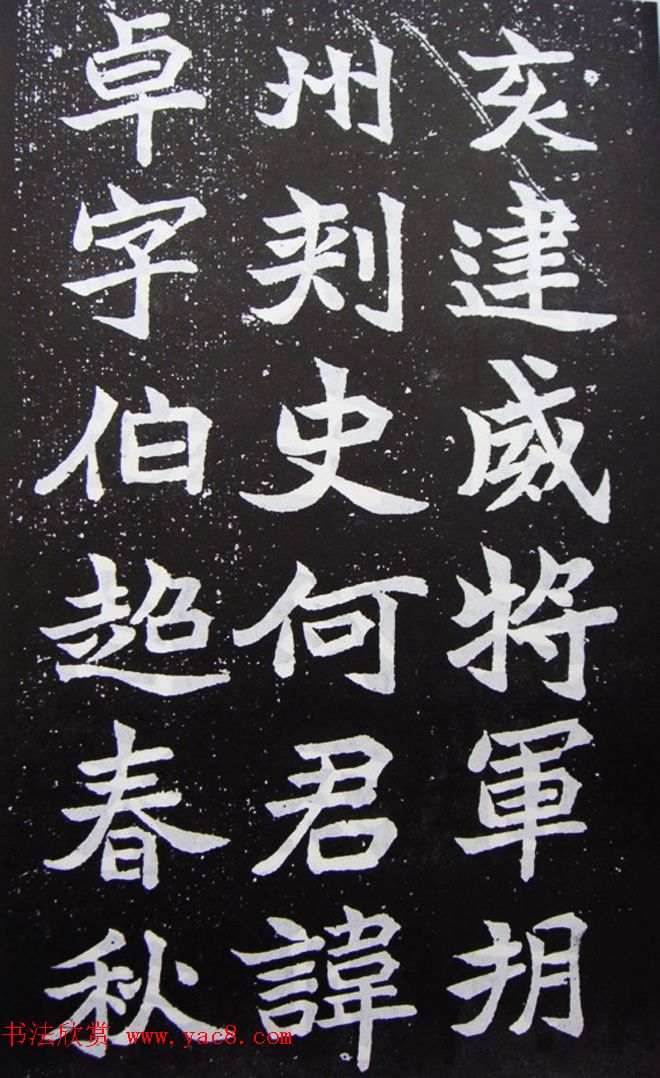 亥建威將軍朔
州刺史何君諱
卓字伯超春秋
书法欣赏 www.yac8.com